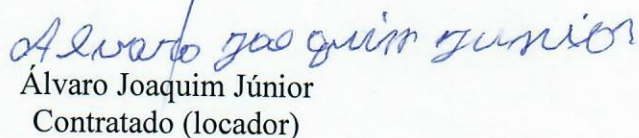 Alvaro Joaquim Junior
Álvaro Joaquim Júnior
Contratado (locador)